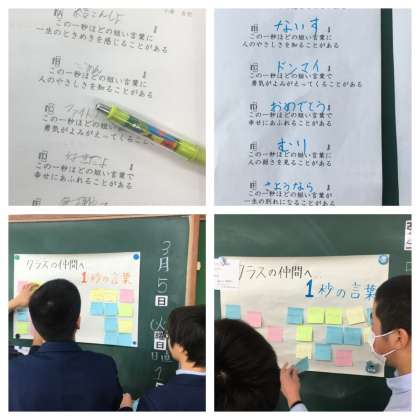 この一秒ほどの短い言葉に
一生のときめきを感じることがある
ごめん
この一秒ほどの短い言葉に
人のやさしさを知ることがある
ファイト
この一秒ほどの短い言葉で
勇気がよみがえってくることがある
この一秒ほどの短い言葉で
幸せにあふれることがある
ないす
この一秒ほどの短い言葉に
人のやさしさを知ることがある
ドンマイ
この一秒ほどの短い言葉で
勇気がよみがえってくることがある
おめでとう
この一秒ほどの短い言葉で
幸せにあふれることがある
むり
この一秒ほどの短い言葉に
人の弱さを見ることがある
さようなら
この一秒ほどの短い言葉が
一生の別れになることがある
クラスの仲間へ
1秒の言葉
3月5日
火曜日
日直
クラスの仲間へ
1秒の言葉